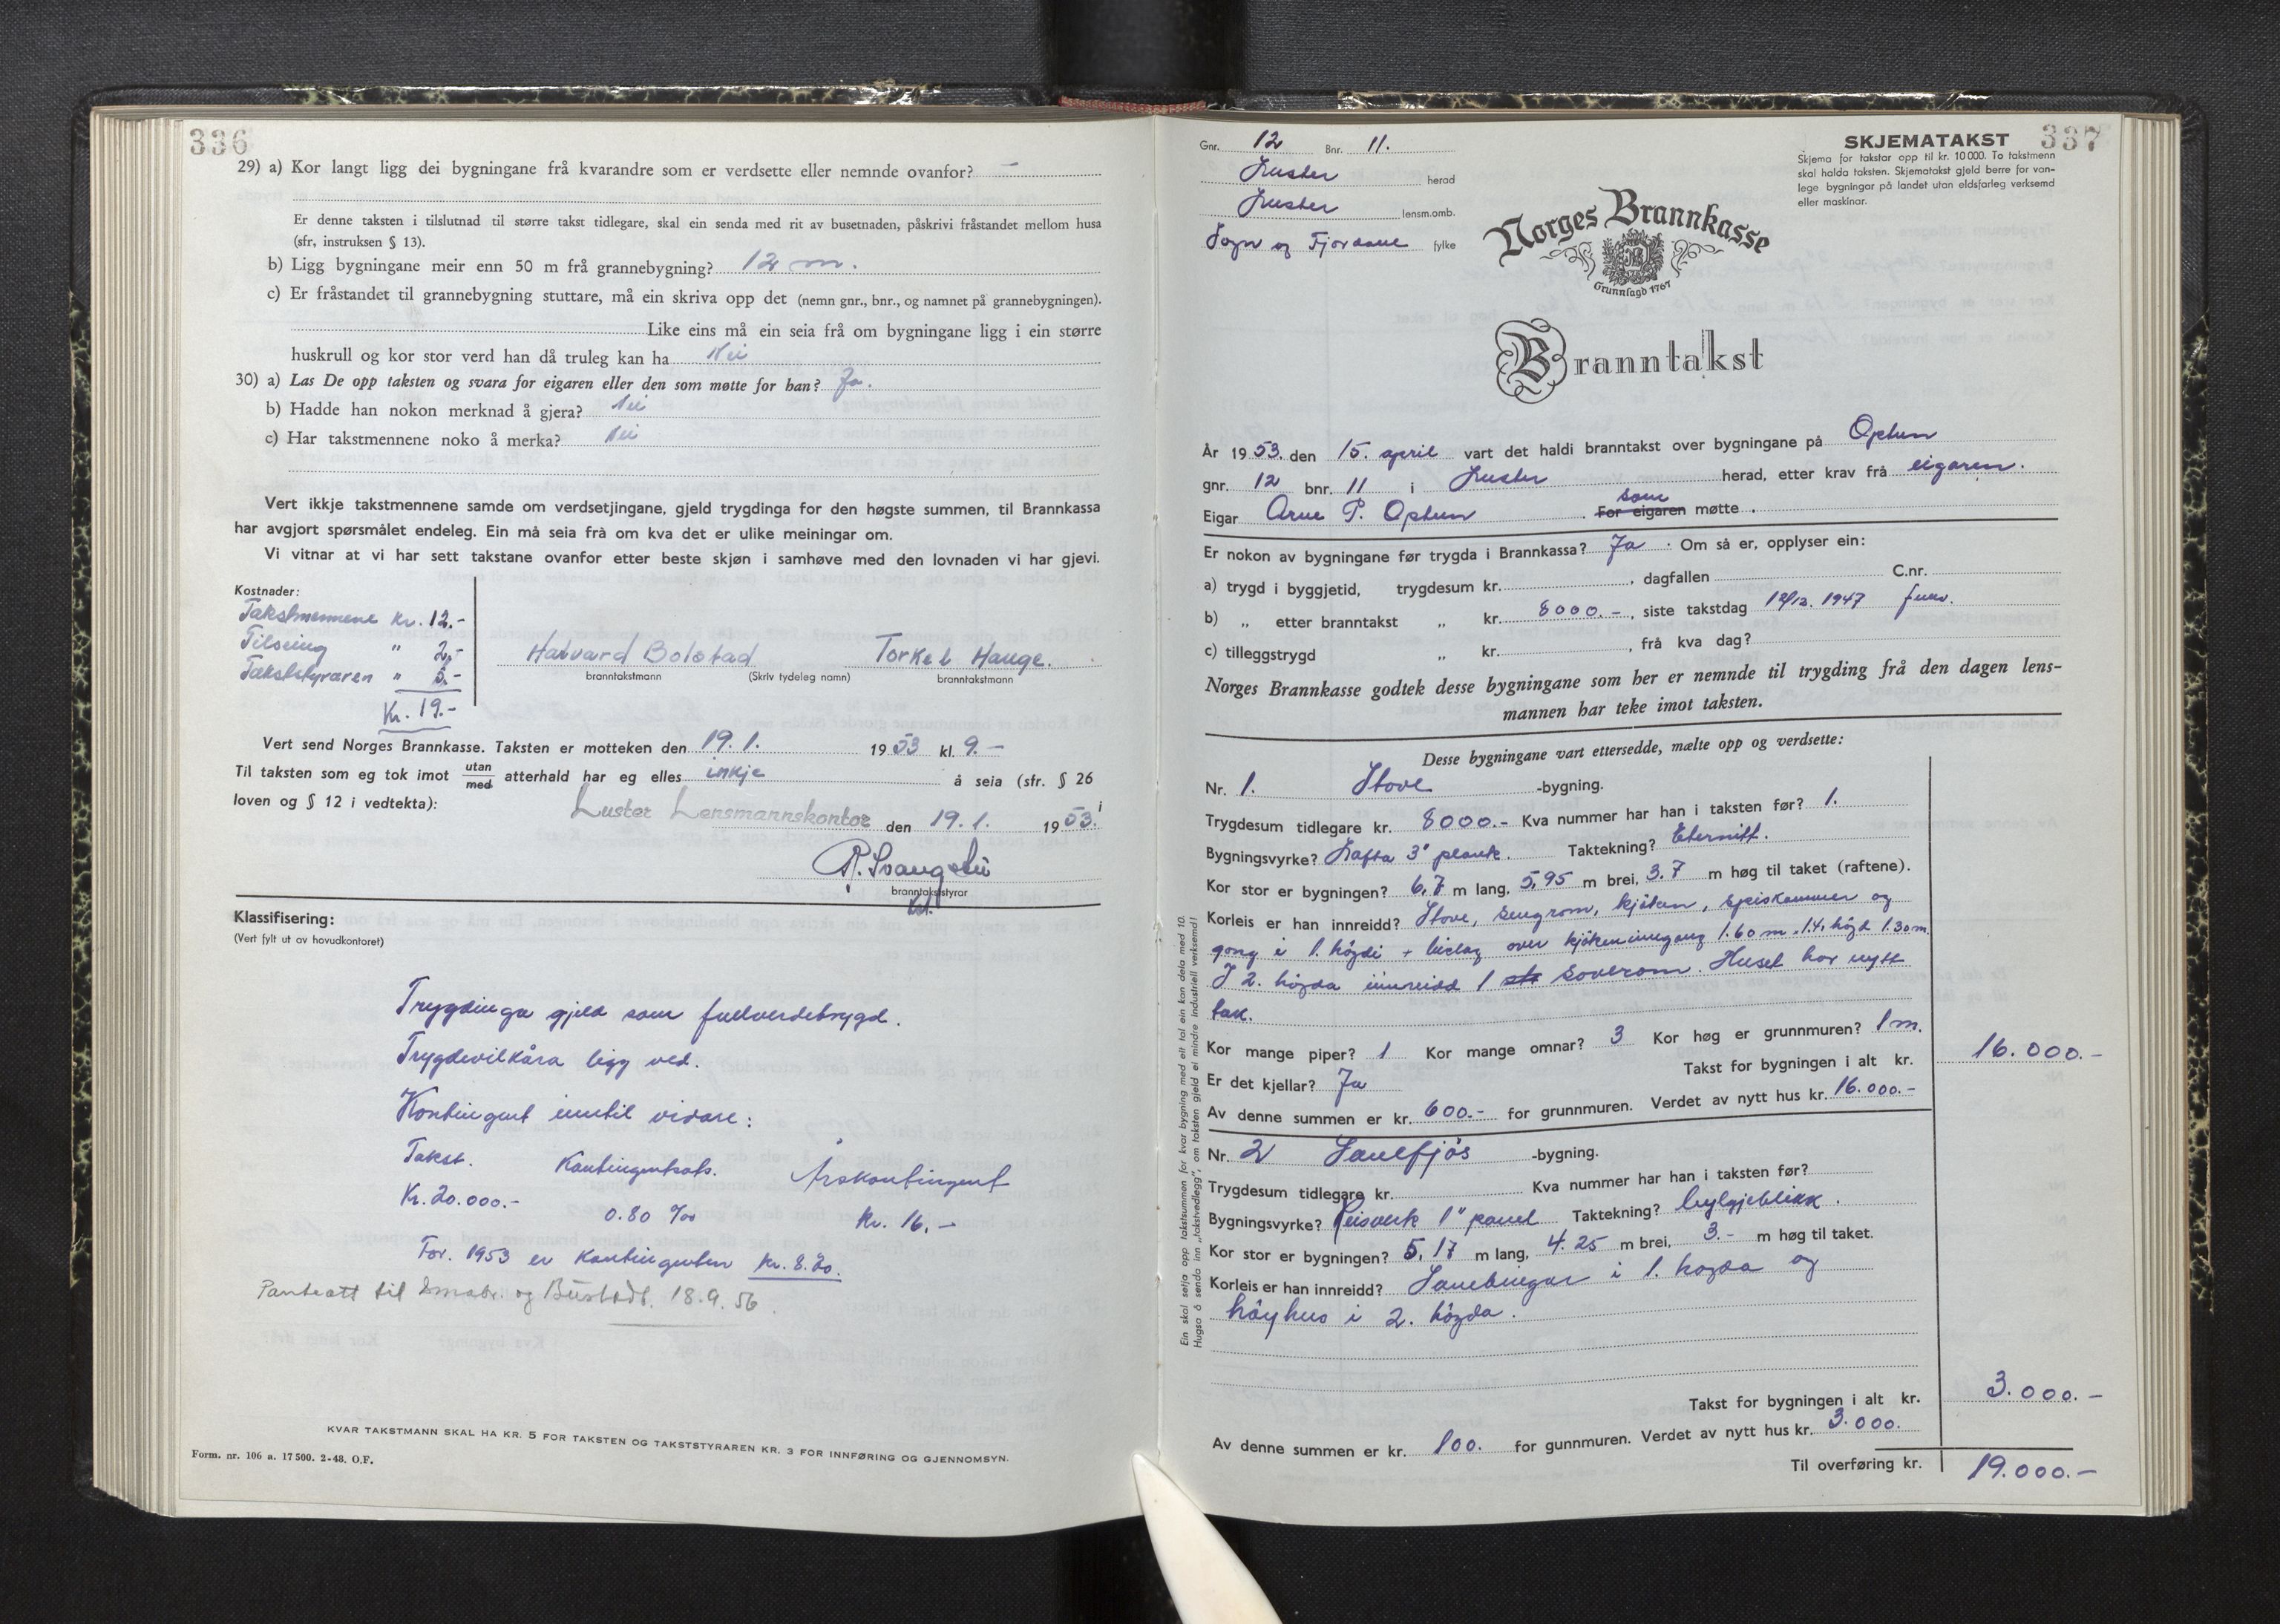 336
29) a) Kor langt ligg dei bygningane frå kvarandre som er verdsette eller nemnde ovanfor? —
Er denne taksten i tilslutnad til større takst tidlegare, skal ein senda med rit av busetnaden, påskrivi fråstandet mellom husa
(sfr, instruksen § 13).
b) Ligg bygningane meir enn 50 m frå grannebygning? 12 m.
c) Er fråstandet til grannebygning stuttare, må ein skriva opp det (nemn gnr., bnr., og namnet på grannebygningen).
Like eins må ein seia frå om bygningane ligg i ein større
huskrull og kor stor verd han då truleg kan ha Nei
30) a) Las De opp taksten og svara for eigaren eller den som møtte for han? Ja.
b) Hadde han nokon merknad å gjera? Nei
c) Har takstmennene noko å merka? Nei
Vert ikkje takstmennene samde om verdsetjingane, gjeld trygdinga for den høgste summen, til Brannkassa
har avgjort spørsmålet endeleg. Ein må seia frå om kva det er ulike meiningar om.
Vi vitnar at vi har sett takstane ovanfor etter beste skjøn i samhøve med den lovnaden vi har gjevi.
Kostnader:
Takstmennene kr. 12.-
Tilseing " 2.-
Takststyraren " 5.-
Kr. 19.-
Havvard Bolstad Torkel Hauge.
branntakstmann (Skriv tydeleg namn) branntakstmann
Vert send Norges Brannkasse. Taksten er motteken den 19. 1. 1953 kl. 9.—
Til taksten som eg tok imot utan/med atterhald har eg elles inkje å seia (sfr. § 26 i
loven og § 12 i vedtekta):
Luster Lensmannskontor den 19. 1. 1953.
branntakststyrar
Klassifisering:
(Vert fylt ut av hovudkontoret)
Trygdinga gjeld som fullverdetrygd.
Trygdevilkåra ligg ved.
Kontingent inntil vidare:
Takst. Kontingentsats. Årskontingent
Kr. 20.000.- 0.80 ‰ Kr. 16.-
For. 1953 er kontingenten kr. 8.20.
Pantsatt til Småbr. og Bustadb. 18.9.56.
KVAR TAKSTMANN SKAL HA KR. 5 FOR TAKSTEN OG TAKSTSTYRAREN KR. 3 FOR INNFØRING OG GJENNOMSYN.
Form. nr. 106 a. 17 500. 2-48. O.F.
337
SKJEMATAKST
Skjema for takstar opp til kr. 10 000. To takstmenn
skal halda taksten. Skjematakst gjeld berre for van-
lege bygningar på landet utan eldsfarleg verksemd
eller maskinar.
Gnr. 12 Bnr. 11.
Luster herad
Luster lensm.omb.
Sogn og Fjordane fylke
Norges Brannkasse
Grunnlagd 1767
Branntakst
År 1953. den 15. april vart det haldi branntakst over bygningane på Optun
gnr. 12 bnr. 11 i Luster herad, etter krav frå eigaren.
Eigar Arne P. Optun. For eigaren som møtte.
Er nokon av bygningane før trygda i Brannkassa? Ja. Om så er, opplyser ein:
a) trygd i byggjetid, trygdesum kr. , dagfallen C.nr.
b) „ etter branntakst „ kr. 8000.-, siste takstdag 12/12. 1947
c) tilleggstrygd „ kr. , frå kva dag?
Norges Brannkasse godtek desse bygningane som her er nemnde til trygding frå den dagen lens-
mannen har teke imot taksten.
Desse bygningane vart ettersedde, mælte opp og verdsette:
Nr. 1. Stove -bygning.
Trygdesum tidlegare kr. 8000.- Kva nummer har han i taksten før? 1.
Bygningsvyrke? Lafta 3" plank. Taktekning? Eternitt.
Kor stor er bygningen? 6,7 m lang, 5,95 m brei, 3.7 m høg til taket (raftene).
Korleis er han innreidd? Stove, sengrom, kjøken, spiskammer og
gong i 1. høgdi + bislag over kjøkeninngang 1.60 m × 1.4, høgd 1.30 m.
I 2. høgda innreidd 1 stk soverom. Huset har nytt
tak.
Kor mange piper? 1 Kor mange omnar? 3 Kor høg er grunnmuren? 1 m.
Er det kjellar? Ja Takst for bygningen i alt kr. 16.000.-
Av denne summen er kr. 600.- for grunnmuren. Verdet av nytt hus kr. 16.000.-
Nr. 2 Sauefjøs -bygning.
Trygdesum tidlegare kr. Kva nummer har han i taksten før?
Bygningsvyrke? Reisverk 1" panel Taktekning? bylgjeblikk.
Kor stor er bygningen? 5,17 m lang, 4.25 m brei, 3.- m høg til taket.
Korleis er han innreidd? Sauebingar i 1. høgda og
høyhus i 2. høgda.
Takst for bygningen i alt kr. 3.000.-
Av denne summen er kr. 100. for gunnmuren. Verdet av nytt hus kr. 3.000.
Til overføring kr. 19.000.-
Ein skal setja opp takstsummen for kvar bygning med eit tal ein kan dela med 10.
Hugsa å senda inn „takstvedlegg", om taksten gjeld ei mindre industriell verksemd!